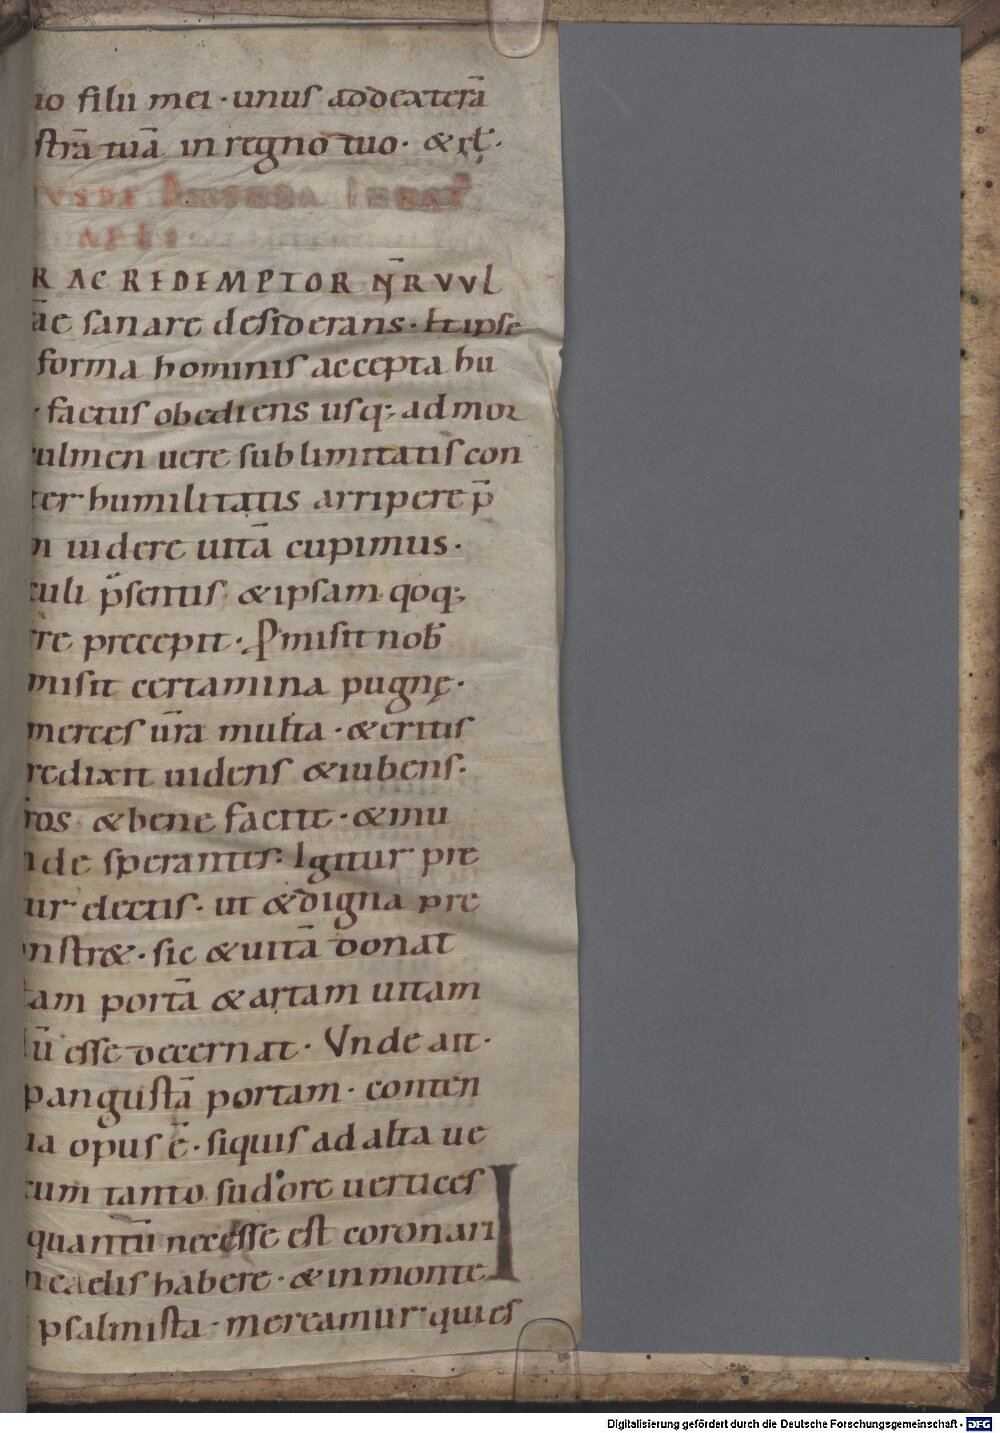 uo filii mei · unus addexterā
strā tuā in regno tuo · & rł.
IUSDĒ
APLI ·
R AC REDEMPTOR NR̄ VVL
āe sanare desiderans · Et ipse
forma hominis accepta hu
· factus obediens usq; ad mor
culmen uere sublimitatis con
ter humilitatis arripere p̄
m uidere uitā cupimus ·
culi p̄sentis & ipsam qoq;
rre precepit · Pmisit nob̄
misit certamina pugnę ·
merces ur̄a multa · & eritis
redixit uidens & iubens ·
ros & bene facite · & mu
nde sperantes : Igitur pre
tur electis · ut & digna pre
n strae · sic & uitā donat
tam portā & artam uitam
ū esse decernat · Unde ait ·
p angustā portam · conten
na opus ē · siquis ad alta ue
cum tanto sudore uertices
quantū necesse est coronari
n caelis habere · & in monte
psalmista · mereamur quies
I
Digitalisierung gefördert durch die Deutsche Forschungsgemeinschaft - DFG